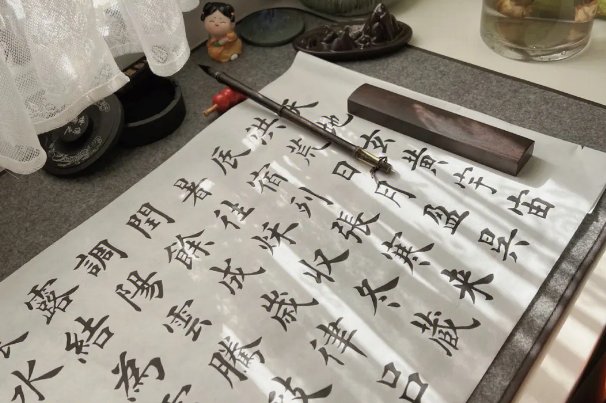 天地玄黃宇宙
洪荒日月盈昃
辰宿列張寒来
暑往秋收冬藏
閏餘成歲律呂
調陽雲騰致
露結為
水